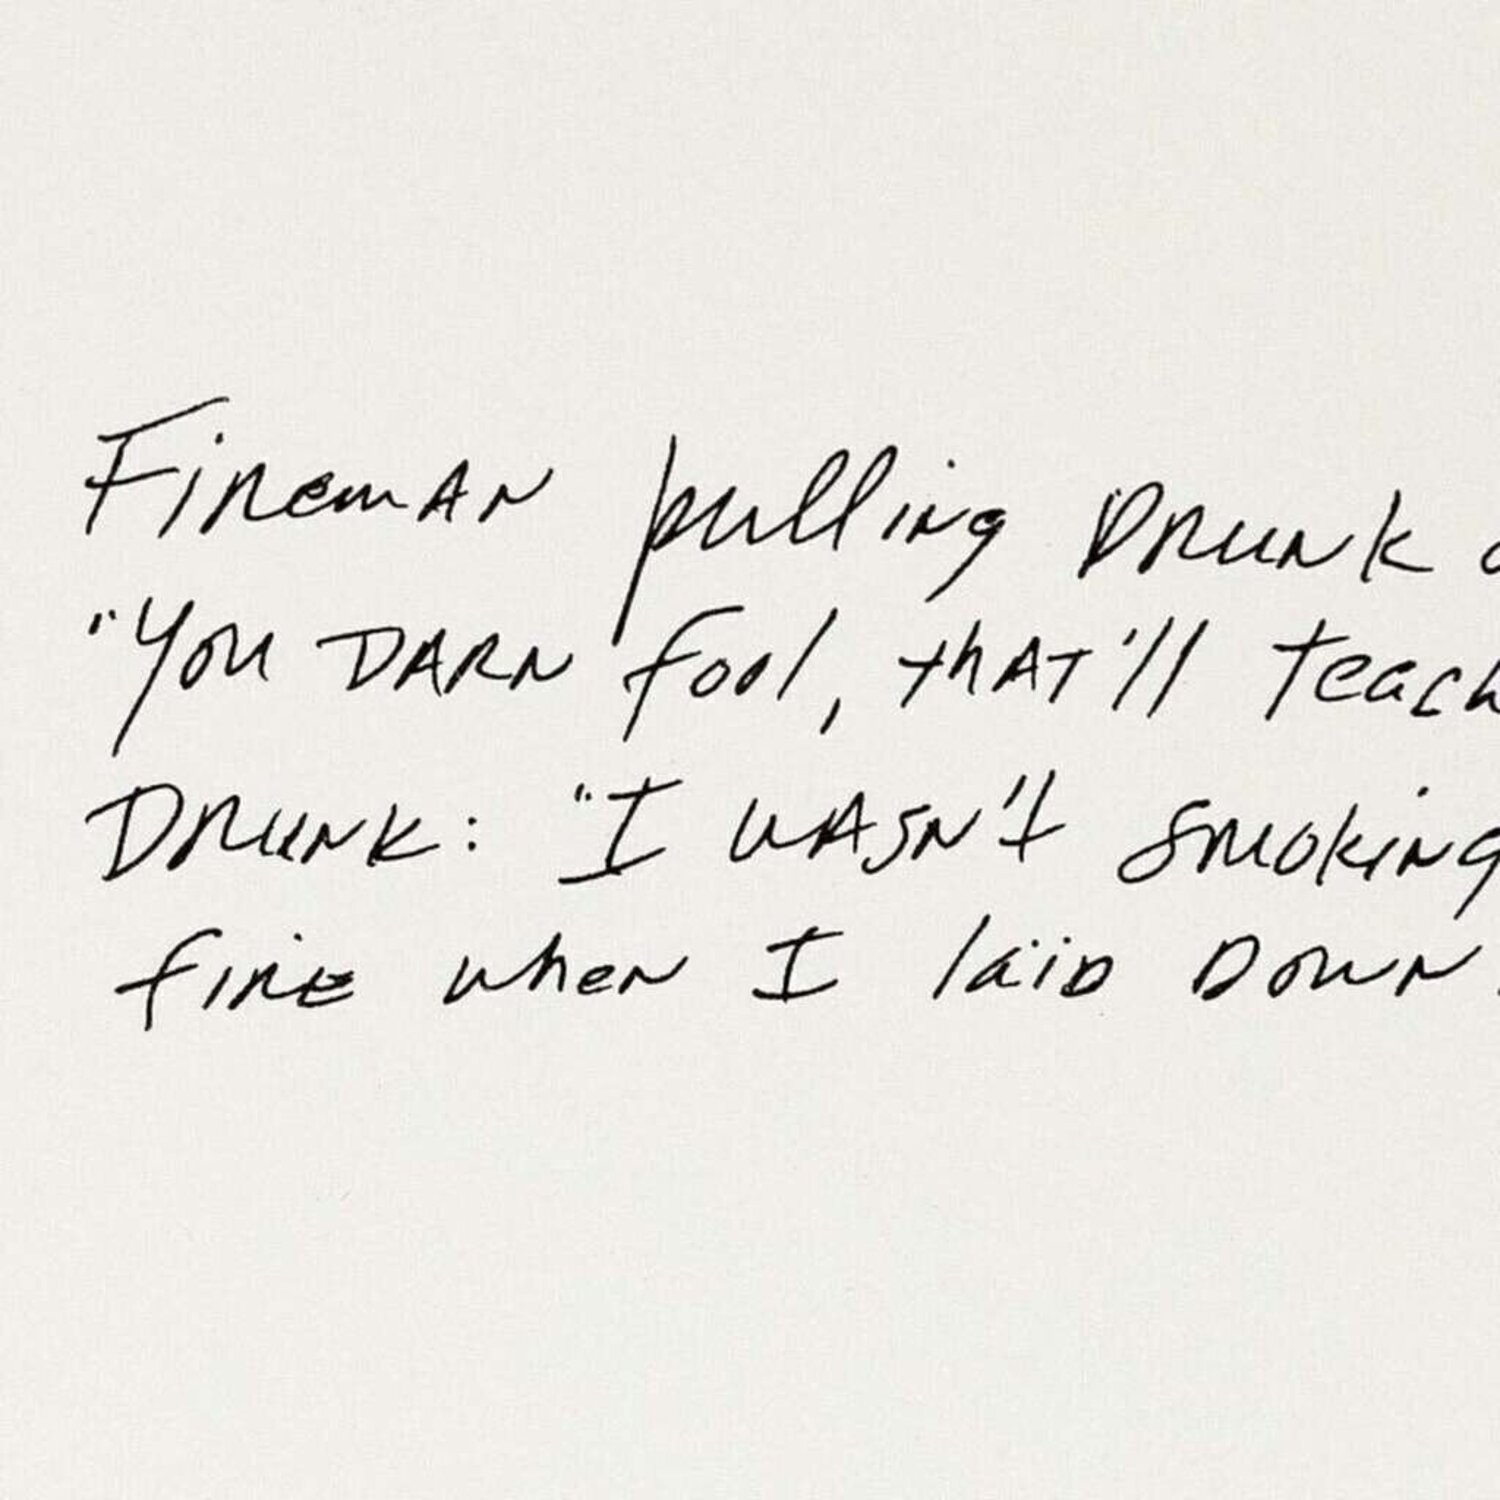 Fireman pulling Drunk o
"You DARN fool, thAT'll teach
DRUNK: "I WASN't smoking
fire when I laid Down.